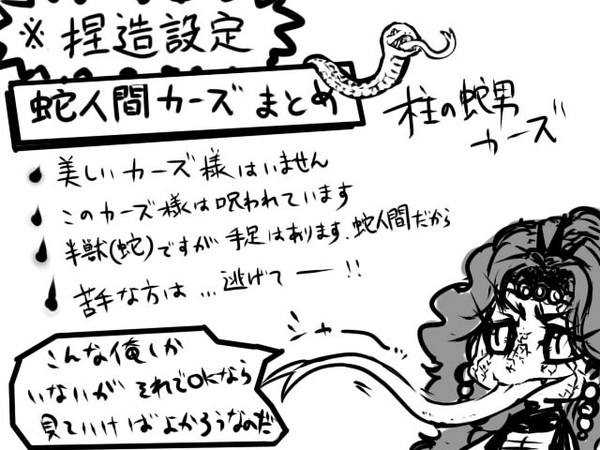 ※捏造設定
蛇人間カーズ まとめ
柱の蛇男
カーズ
・美しいカーズ様はいません
・このカーズ様は呪われています
・半獣(蛇)ですが手足はあります、蛇人間だから
・苦手な方は…逃げてー!!
シャー
こんな俺しか
いないが それでOKなら
見ていけばよかろうなのだ